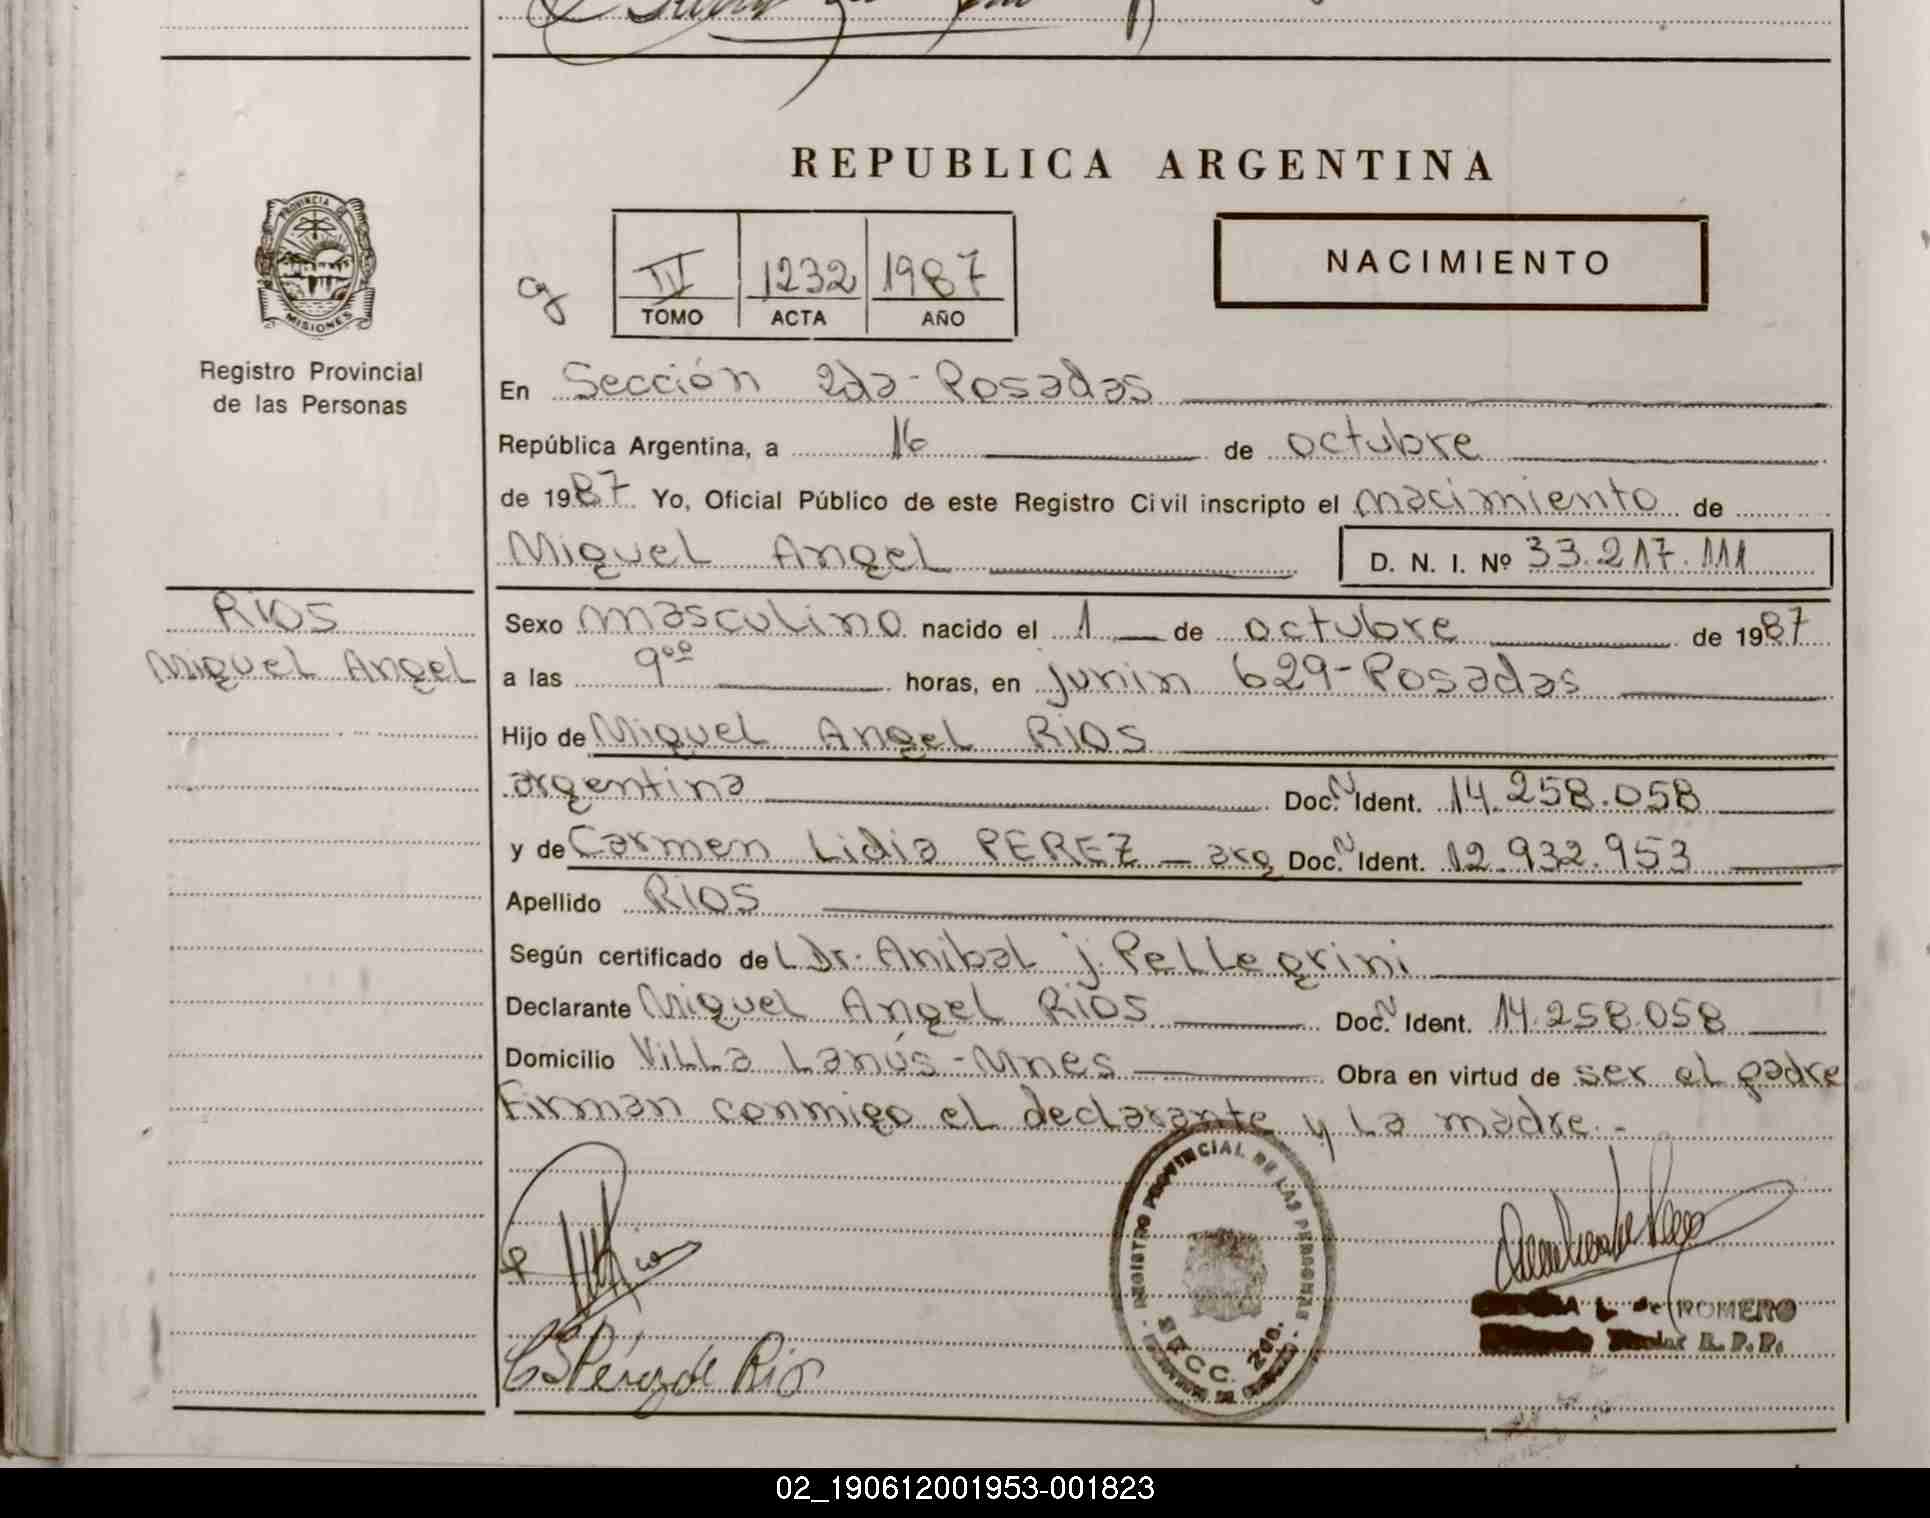 REPUBLICA ARGENTINA
PROVINCIA DE
MISIONES
Registro Provincial
de las Personas
NACIMIENTO
IV 1232 1987
TOMO ACTA AÑO
En Sección 2da-Posadas
República Argentina, a 16 de octubre
de 1987 Yo, Oficial Público de este Registro Civil inscripto el nacimiento de
Miguel Angel D. N. I. Nº 33.217.111
RIOS
Miguel Angel
Sexo masculino nacido el 1 de octubre de 1987
a las 9ºº horas, en junin 629-Posadas
Hijo de Miguel Angel RIOS
argentina Doc. N Ident. 14.258.058
y de Carmen Lidia PEREZ - arg Doc. N Ident. 12.932.953
Apellido RIOS
Según certificado del Dr. Anibal j. Pellegrini
Declarante Miguel Angel RIOS Doc. N Ident. 14.258.058
Domicilio Villa Lanús-Mnes Obra en virtud de ser el padre
Firman conmigo el declarante y la madre.-
REGISTRO PROVINCIAL DE LAS PERSONAS
SECC. 2da.
L. de ROMERO
R. P. P.
Pérez de Rios
02_190612001953-001823